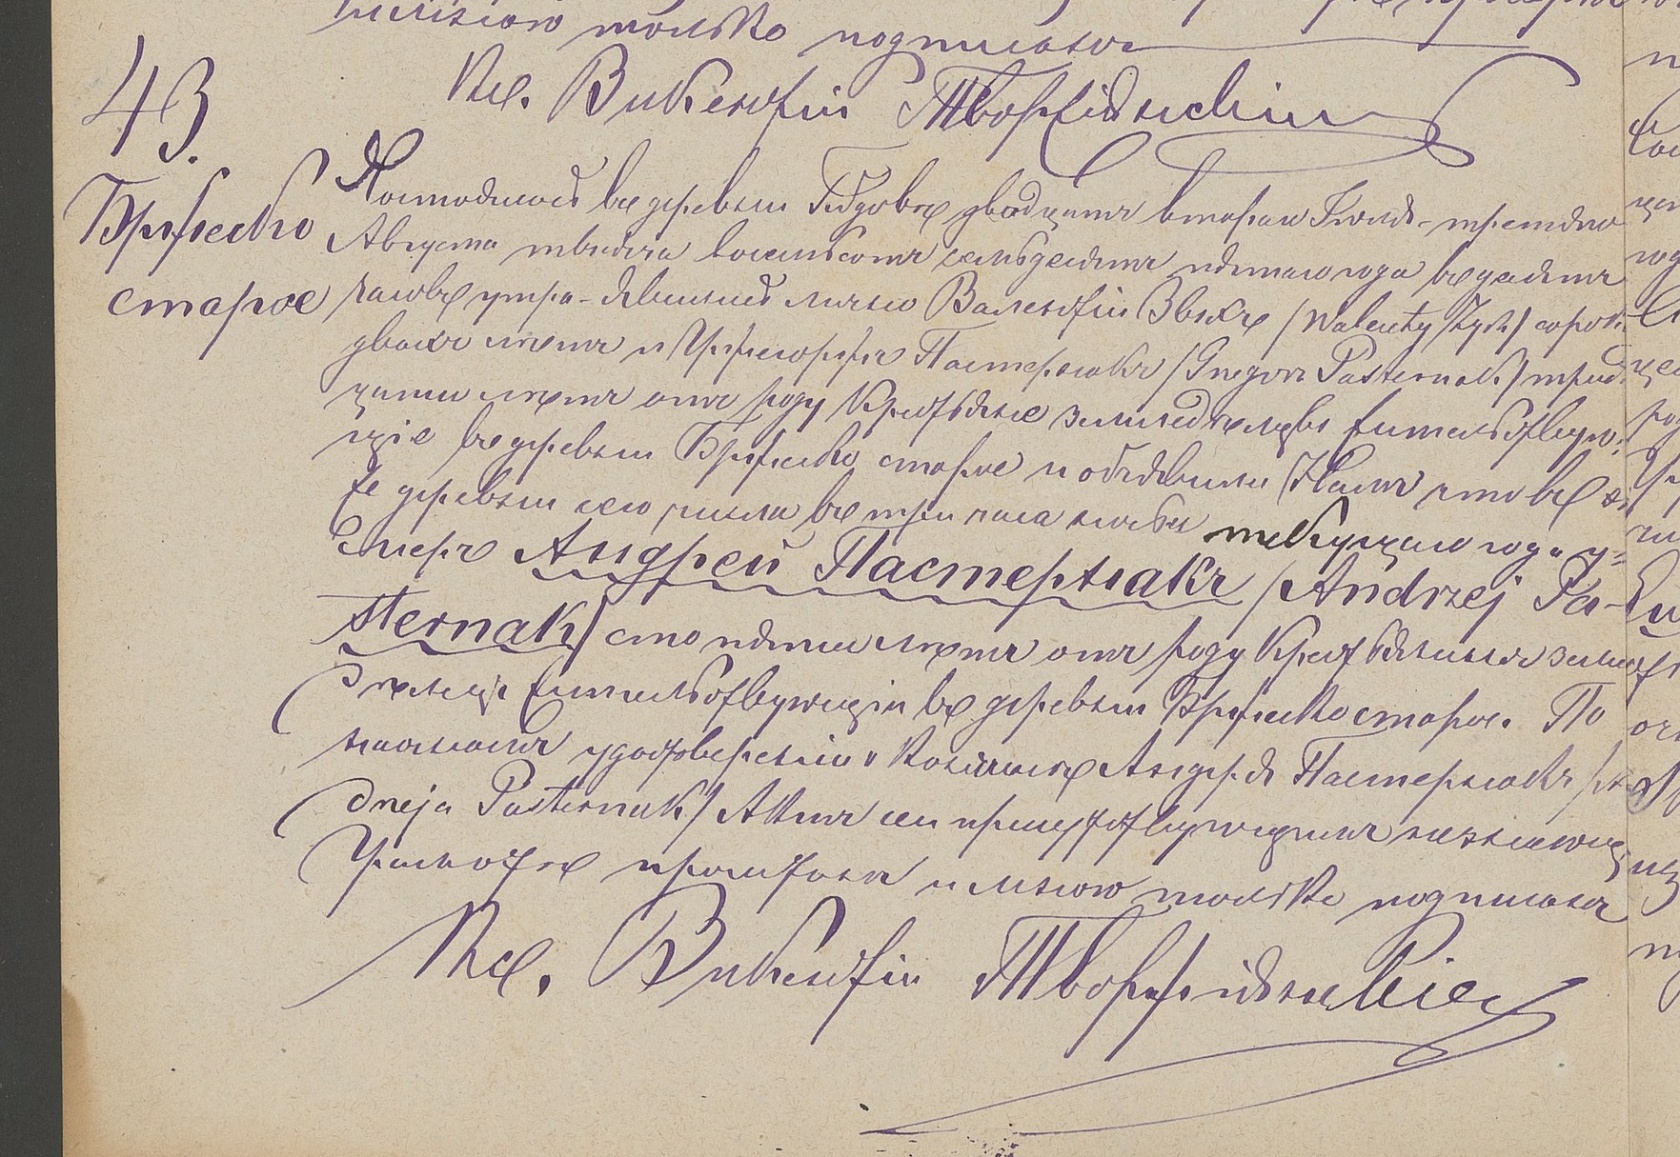 только подписанъ
Кс. Викентій
43.
Бржеско
старое
Состоялось въ деревни двадцать втораго Іюля - третяго
Августа тысяча восемьсотъ семьдесятъ пятаго года въ десять
часовъ утра - явились лично Валентій Зыкъ /Walenty Zyk/ сорокъ
двахъ летъ и Гржегоржъ Пастернакъ /Gregorz Pasternak/ трид-
цати летъ отъ роду Крестьяне земледельцы жительствую-
щіе въ деревни Бржеско старое и объявили Намъ что въ
же деревни сего числа въ три часа текущаго года у=
меръ Андрей Пастернакъ /Andrzej Pa-
sternak/ сто пяти летъ отъ роду Крестьянинъ земле
делецъ жительствующій въ деревни Бржеско старое. По
настоящемъ удостовереніи о Кончине Андрея Пастернакъ /An
dreja Pasternak/ Актъ сей присутствующимъ незнающ
Грамоте прочитанъ и мною только подписанъ
Кс. Викентій